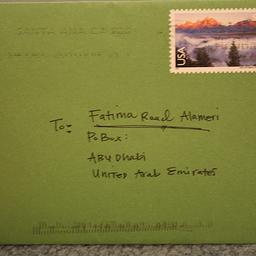 SANTA ANA CA 926
USA
To: Fatima Raed Alameri
Po Box:
Abu Dhabi
United Arab Emirates